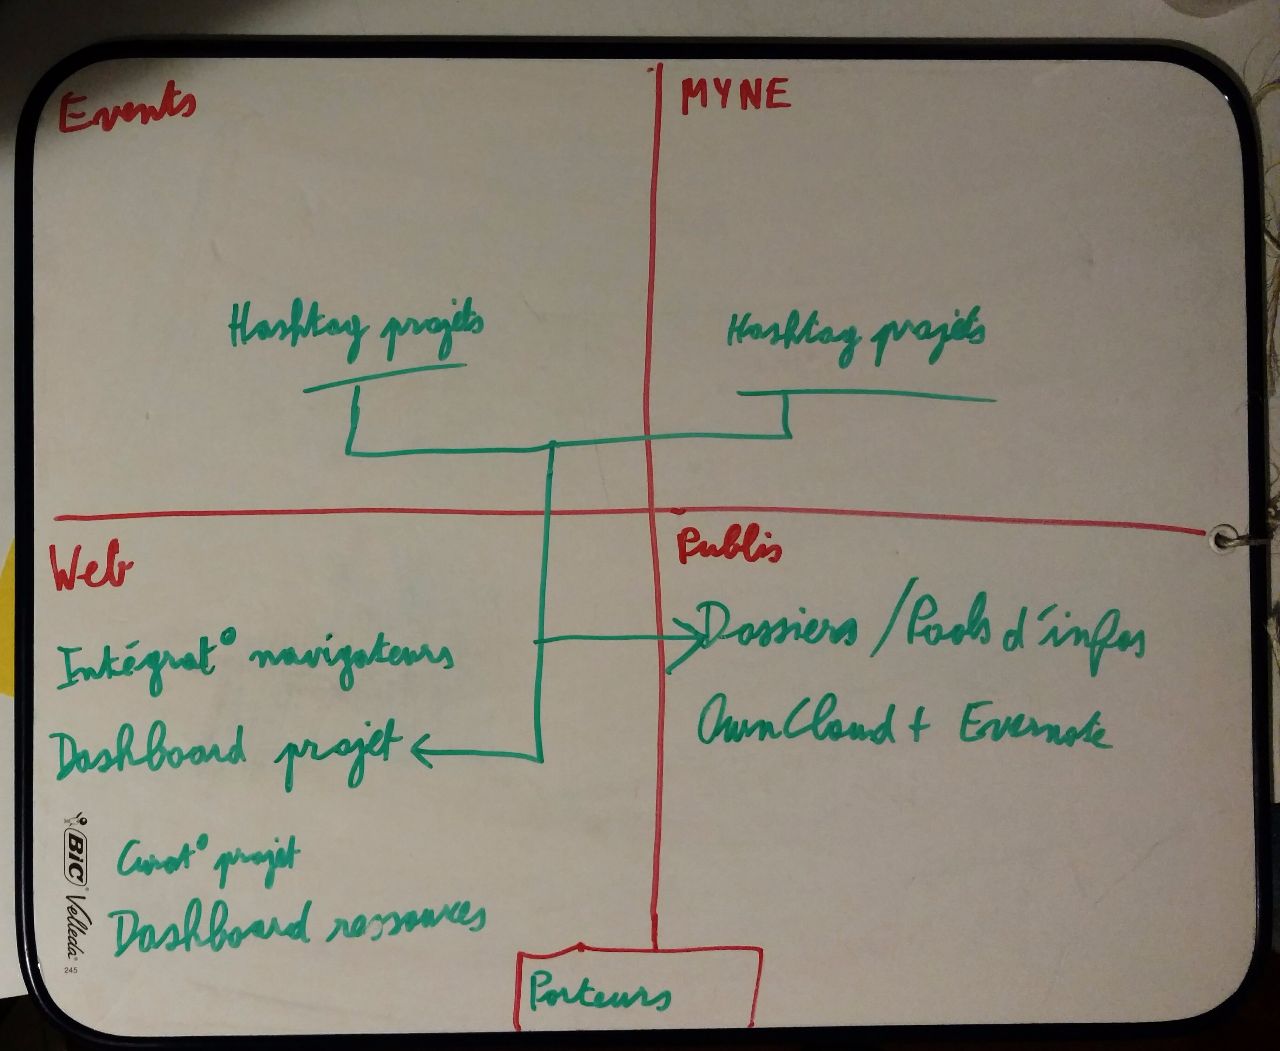 Events
MYNE
Hashtag projets
Hashtag projets
Web
Publis
Intégrat° navigateurs
Dossiers / Pools d'infos
Dashboard projet
OwnCloud + Evernote
Curat° projet
Dashboard ressources
Porteurs
BiC Velleda
245